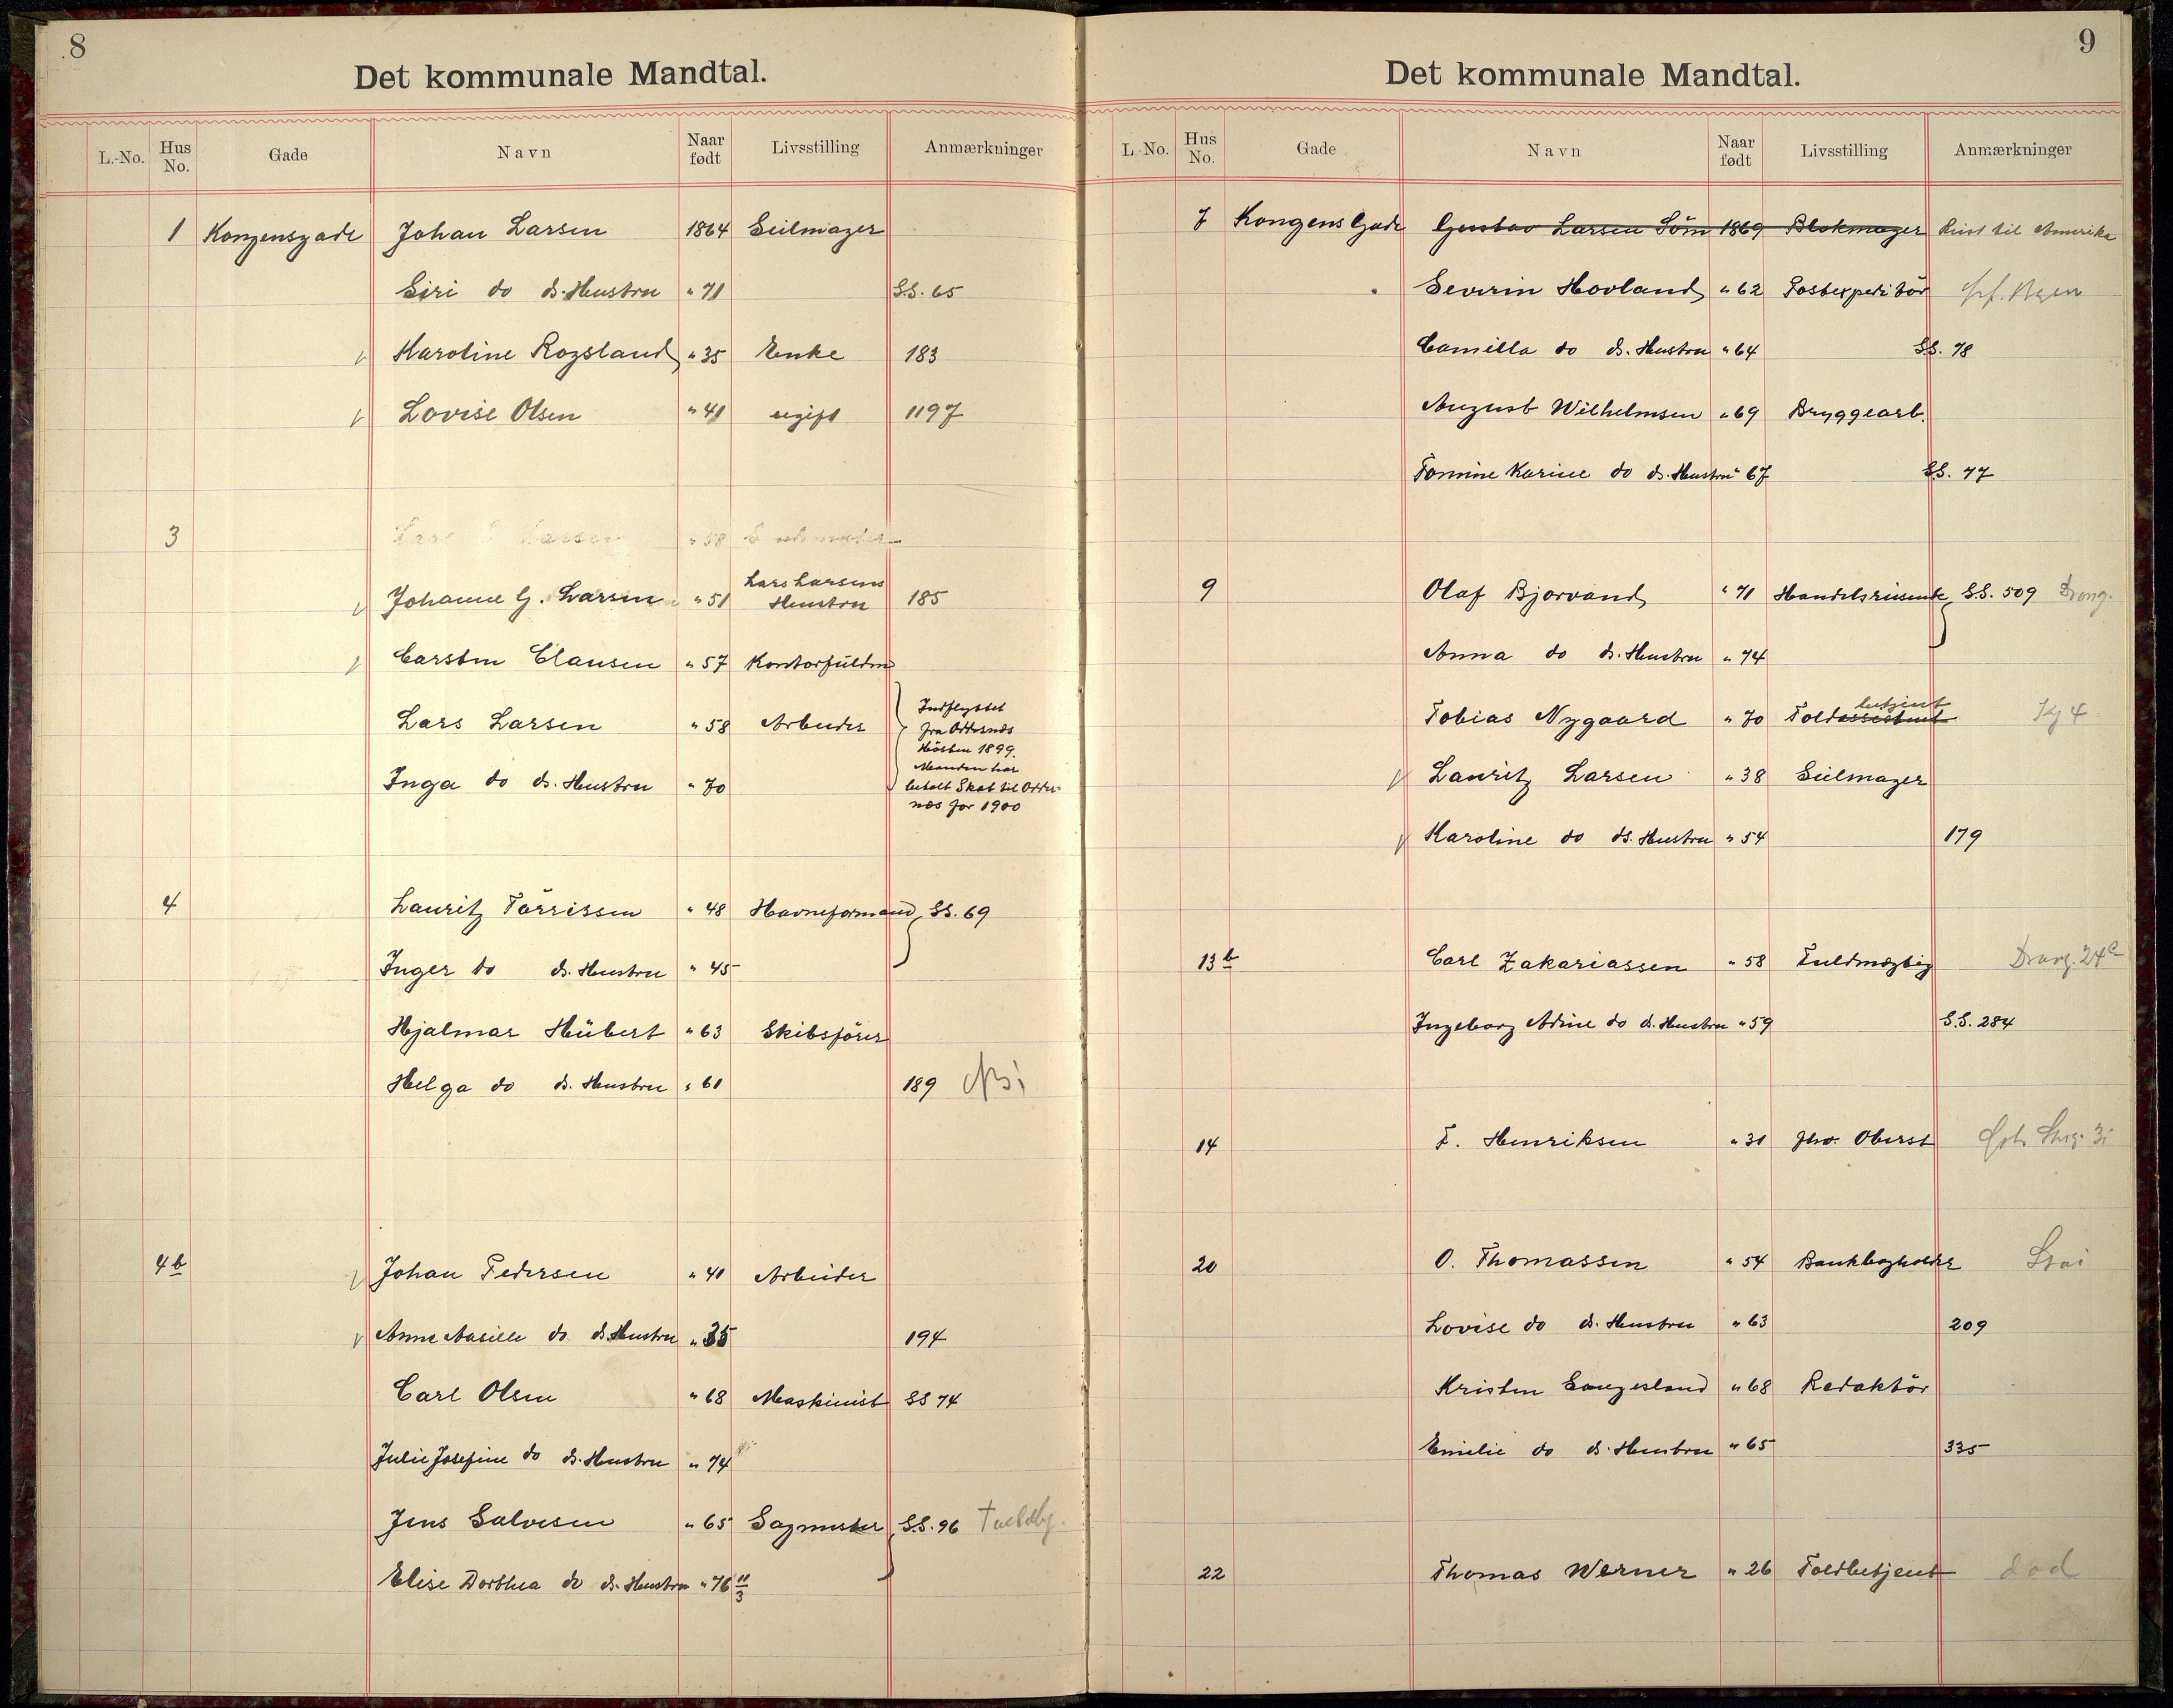 8
Det kommunale Mandtal.
L.-No. Hus No. Gade Navn Naar født Livsstilling Anmærkninger
1 Kongensgade Johan Larsen 1864 Seilmager
Siri do ds. Hustru " 71 S.S. 65
Karoline Rogsland " 35 Enke 183
Lovise Olsen " 41 ugift 1197
3 " 58
Johanne G. Larsen " 51 Lars Larsens Hustru 185
Carsten Clausen " 57 Kontorfuldm
Lars Larsen " 58 Arbeider Indflyttet
fra Oddernæs
Høsten 1899.
Manden har
Inga do ds. Hustru " 70 betalt Skat til Odder-
næs for 1900
4 Lauritz Tørrissen " 48 Havneformand S.S. 69
Inger do ds. Hustru " 45
Hjalmar Hübert " 63 Skibsfører
Helga do ds. Hustru " 61 189
4b Johan Pedersen " 40 Arbeider
Anne Aasille do ds Hustru " 35 194
Carl Olsen " 68 Maskinist SS 74
Julie Josefine do ds. Hustru " 74
Jens Salvesen " 65 Sagmester S.S. 96
Elise Dorthea do ds. Hustru " 76 11/3
9
Det kommunale Mandtal.
L.-No. Hus No. Gade Navn Naar født Livsstilling Anmærkninger
7 Kongens Gade Gustav Larsen Söm 1869 Blokmager Reist til Amerika
Severin Hovland " 62 Postexpeditör
Camilla do ds. Hustru " 64 S.S. 78
August Wilhelmsen " 69 Bryggearb.
Tomine Karine do ds. Hustru " 67 S.S. 77
9 Olaf Bjorvand " 71 Handelsreisende S.S. 509 Drong.
Anna do ds. Hustru " 74
Tobias Nygaard " 70 Toldassistent betjent Kg 4
Lauritz Larsen " 38 Seilmager
Karoline do ds. Hustru " 54 179
13b Carl Zakariassen " 58 Fuldmægtig Drong. 24
Ingeborg Adine do ds. Hustru " 59 S.S. 284
14 F. Henriksen " 31 Oberst
20 O. Thomassen " 54 Bankbogholder
Lovise do ds. Hustru " 63 209
Kristen Langesland " 68 Redaktör
Emilie do ds. Hustru " 65 335
22 Thomas Werner " 26 Toldbetjent død